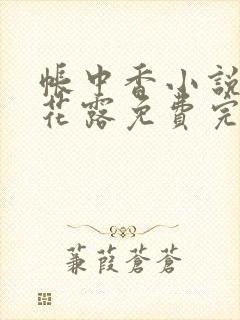 帳中香小說
花露免費完
蒹葭蒼蒼